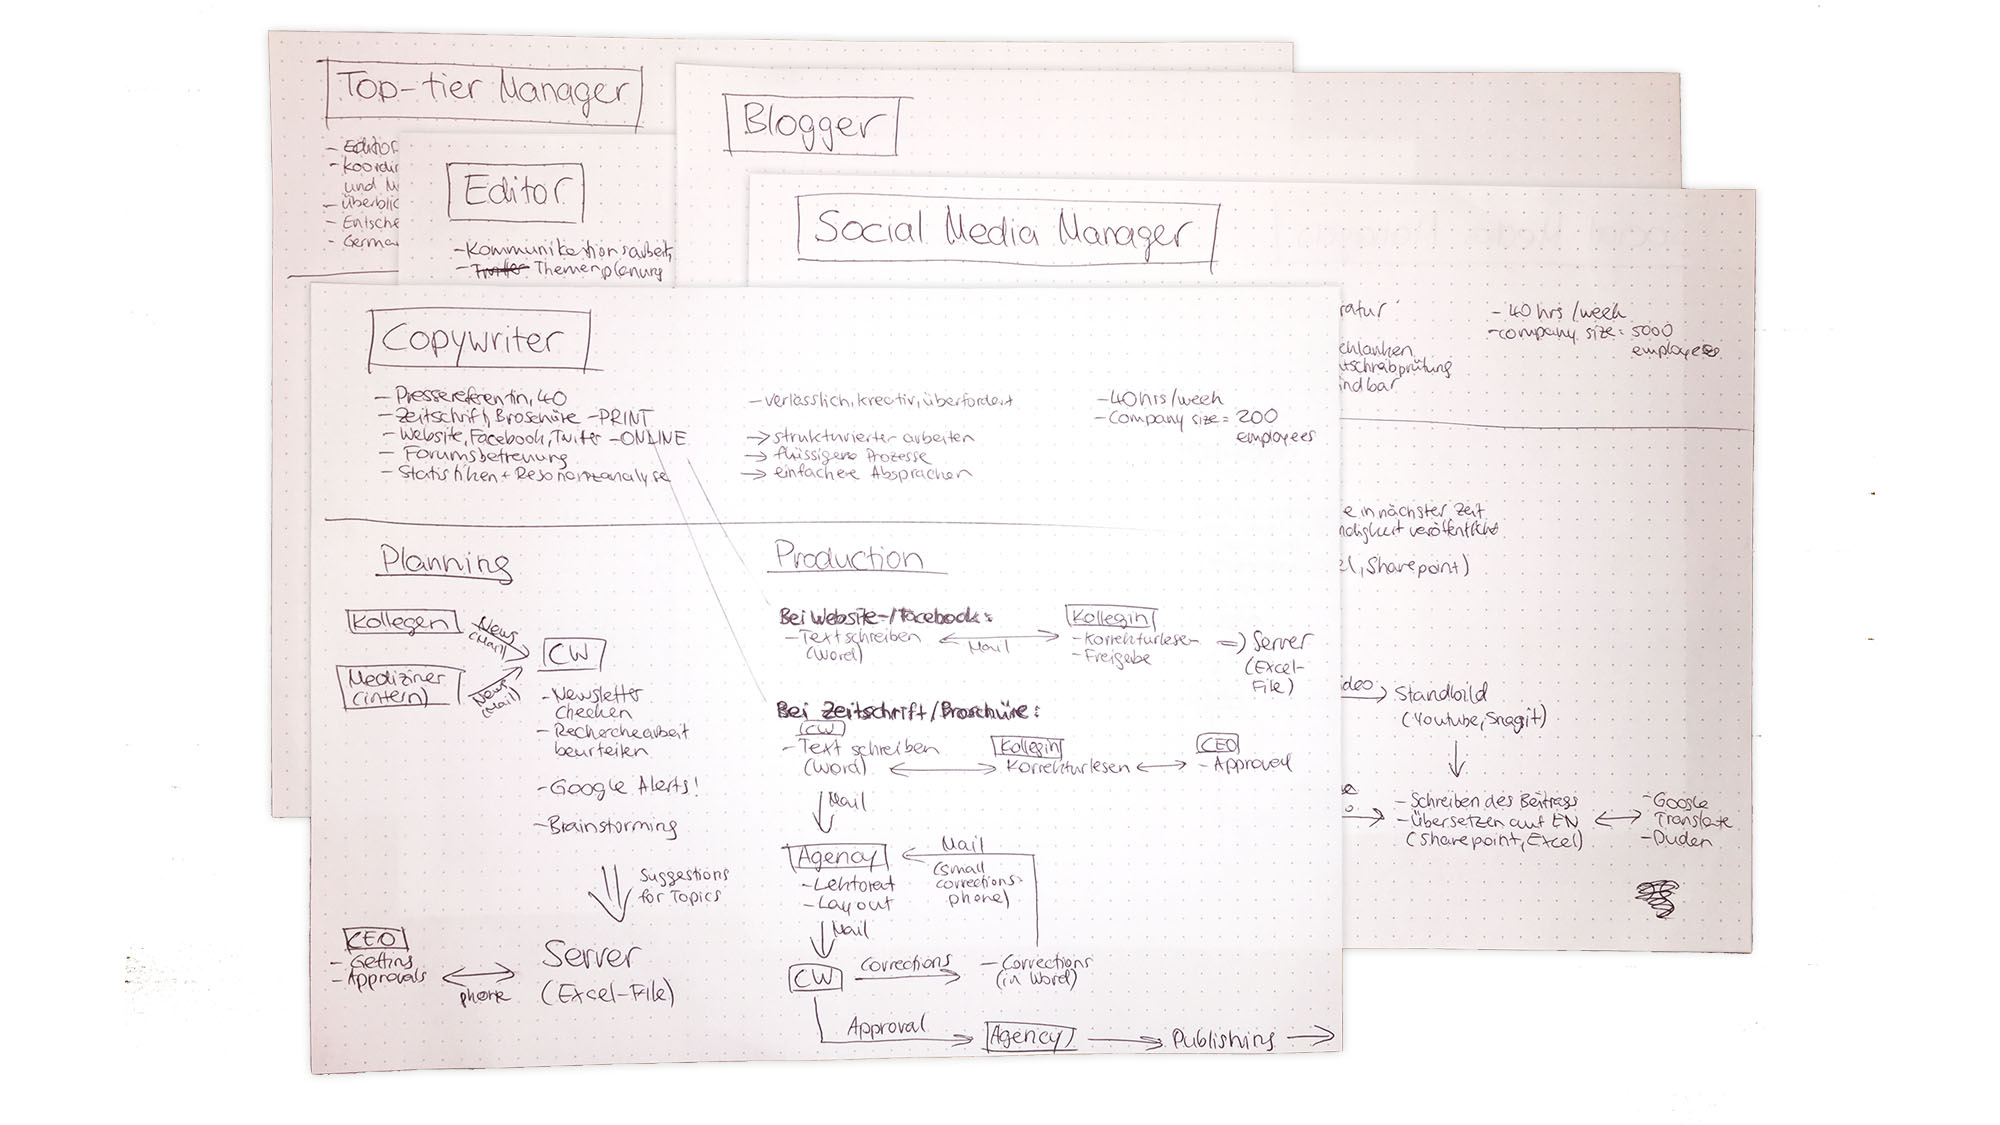 Top-tier Manager
- Editor
- Koordin
und M
- überblic
- Entsche
- German
Blogger
Editor
- Kommunikationsarbeit,
- Themenplanung
Social Media Manager
ratur
- 40 hrs/week
- company size = 5000
employees
chlanken
tschreibprüfung
ndbar
e in nächster Zeit
ndigkeit veröffentlicht
el, Sharepoint)
ideo
Standbild
(Youtube, Snagit)
- Schreiben des Beitrags
- Übersetzen auf EN
(Sharepoint, Excel)
- Google
Translate
- Duden
Copywriter
- Pressereferentin, 40
- Zeitschrift, Broschüre - PRINT
- Website, Facebook, Twitter - ONLINE
- Forumsbetreuung
- Statistiken + Resonanzanalyse
- verlässlich, kreativ, überfordert
→ strukturierter arbeiten
→ flüssigere Prozesse
→ einfachere Absprachen
- 40 hrs/week
- Company size = 200
employees
Planning
Kollegen
News
(Mail)
Mediziner
(intern)
News
(Mail)
CW
- Newsletter
checken
- Recherchearbeit
beurteilen
- Google Alerts!
- Brainstorming
Suggestions
for Topics
CEO
- Getting
- Approvals
phone
Server
(Excel-File)
Production
Bei Website-/Facebook:
- Text schreiben
(Word)
Mail
Kollegin
- Korrekturlesen
- Freigabe
⇒ Server
(Excel-
File)
Bei Zeitschrift/Broschüre:
CW
- Text schreiben
(Word)
Kollegin
Korrekturlesen
CEO
- Approval
Mail
Agency
- Lektorat
- Layout
Mail
(small
corrections:
phone)
Mail
CW
Corrections
- Corrections
(in Word)
Approval
Agency
Publishing